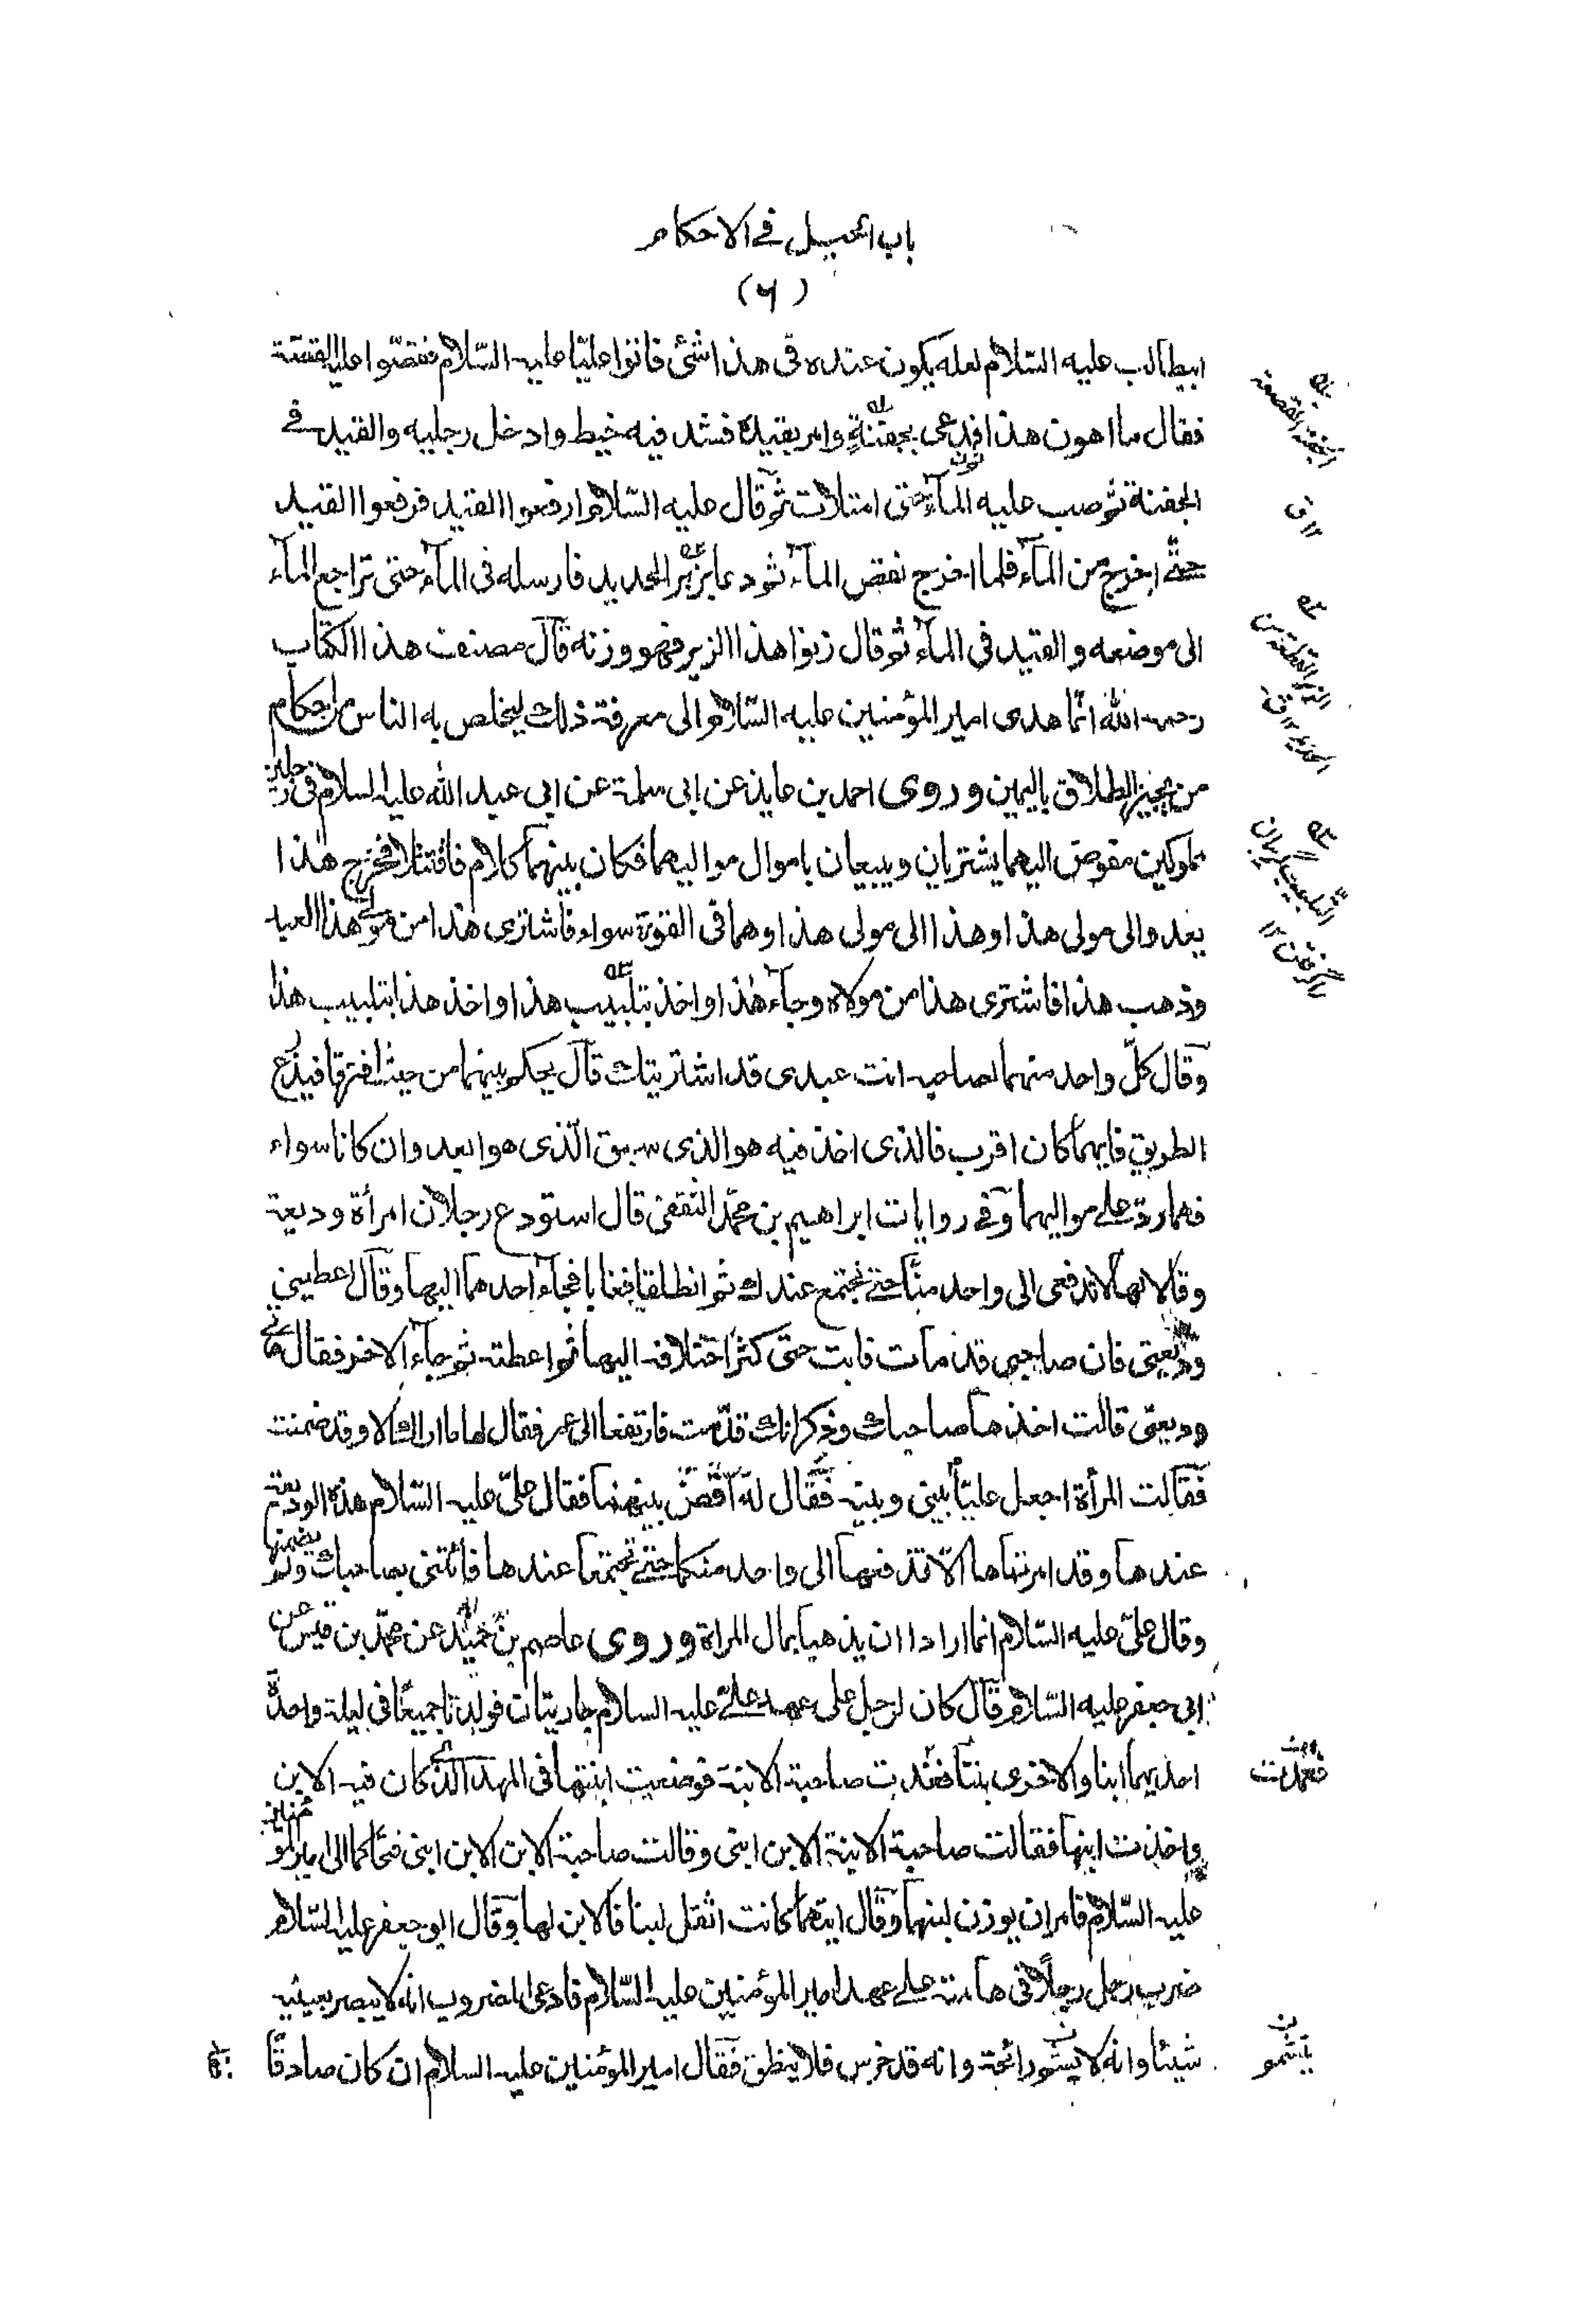 باب الحيل في الاحكام
(٦)
ابيطالب عليه السّلام لعله يكون عنده في هذا شئ فاتوا عليّا عليه السّلام فقصّوا عليه القصّة
فقال ما اهون هذا فدعى بجفنةٍ وامر بقيده فشد فيه خيط وادخل رجليه والقيد في
الجفنة ثم صب عليه المآء حتى امتلات ثم قال عليه السّلام ارفعوا القيد فرفعوا القيد
حتّى اخرج من المآء فلما اخرج نقص المآء ثم دعا بزبر الحديد فارسله فى المآء حتى تراجع المآء
الى موضعه والقيد في المآء ثم قال زنوا هذا الزبر فهو وزنه قال مصنف هذا الكتاب
رحمه الله انّما هدى امير المؤمنين عليه السّلام الى معرفة ذلك ليخلص به الناس من احكام
من يجيز الطلاق باليمين وروى احمد بن عايذ عن ابى سلمة عن ابى عبد الله عليه السلام فى رجلين
مملوكين مفوض اليهما يشتريان ويبيعان باموال مواليهما فكان بينهما كلام فاقتتلا فخرج هذا
يعدوالى مولى هذا وهذا الى مولى هذا وهما فى القوة سواء فاشترى هذا من مولى هذا العبد
وذهب هذا فاشترى هذا من مولاه وجآء هذا واخذ بتلبيب هذا واخذ هذا بتلبيب هذا
وقال كلّ واحد منهما لصاحبه انت عبدى قد اشتريتك قال يحكم بينهما من حيث افترقا فيذرع
الطريق فايهما كان اقرب فالذى اخذ فيه هو الذى سبق الّذى هو ابعد وان كانا سواء
فهما ردّ على مواليهما وفى روايات ابراهيم بن محمّد الثقفى قال استودع رجلان امرأة وديعة
وقالا لها لا تدفعى الى واحد منّا حتى نجتمع عندك ثم انطلقا فغابا فجآء احدهما اليها وقال اعطينى
وديعتى فان صاحبى قد مات فابت حتى كثر اختلافه اليها ثم اعطته ثم جآء الاخر فقال هاتى
وديعتى قالت اخذها صاحبك وذكر انك قد مت فارتفعا الى عمر فقال لها ما اراك الا وقد ضمنت
فقالت المرأة اجعل عليّاً بينى وبينه فقال له اقض بينهما فقال علىّ عليه السّلام هذه الوديعة
عندها وقد امرتماها الّا تدفعها الى واحد منكما حتى تجتمعا عندها فائتنى بصاحبك ولم يضمنها
وقال علىّ عليه السّلام انما ارادا ان يذهبا بمال المراة وروى عاصم بن حميد عن محمّد بن قيس عن
ابى جعفر عليه السّلام قال كان لرجل على عهد علىّ عليه السلام جاريتان فولدتا جميعًا فى ليلة واحدة
احديهما ابنا والاخرى بنتا فعدت صاحبة الابنة فوضعت ابنتها فى المهد الذى كان فيه الابن
واخذت ابنها فقالت صاحبة الابنة الابن ابنى وقالت صاحبة الابن الابن ابنى فتحاكما الى امير المؤمنين
عليه السّلام فامر ان يوزن لبنهما وقال ايتهما كانت اثقل لبنا فالابن لها وقال ابو جعفر عليه السّلام
ضرب رجل رجلاً فى هامته على عهد امير المؤمنين عليه السّلام فادعى المضروب انه لا يبصر بعينيه
شيئا وانه لا يشم رائحة وانه قد خرس فلا ينطق فقال امير المؤمنين عليه السلام ان كان صادقًا
الجفنة القصعة
١٢ ق
الزبر القطعة من
الحديد ١٢ ق
التلبيب گريبان
گرفتن ١٢
فعمدت